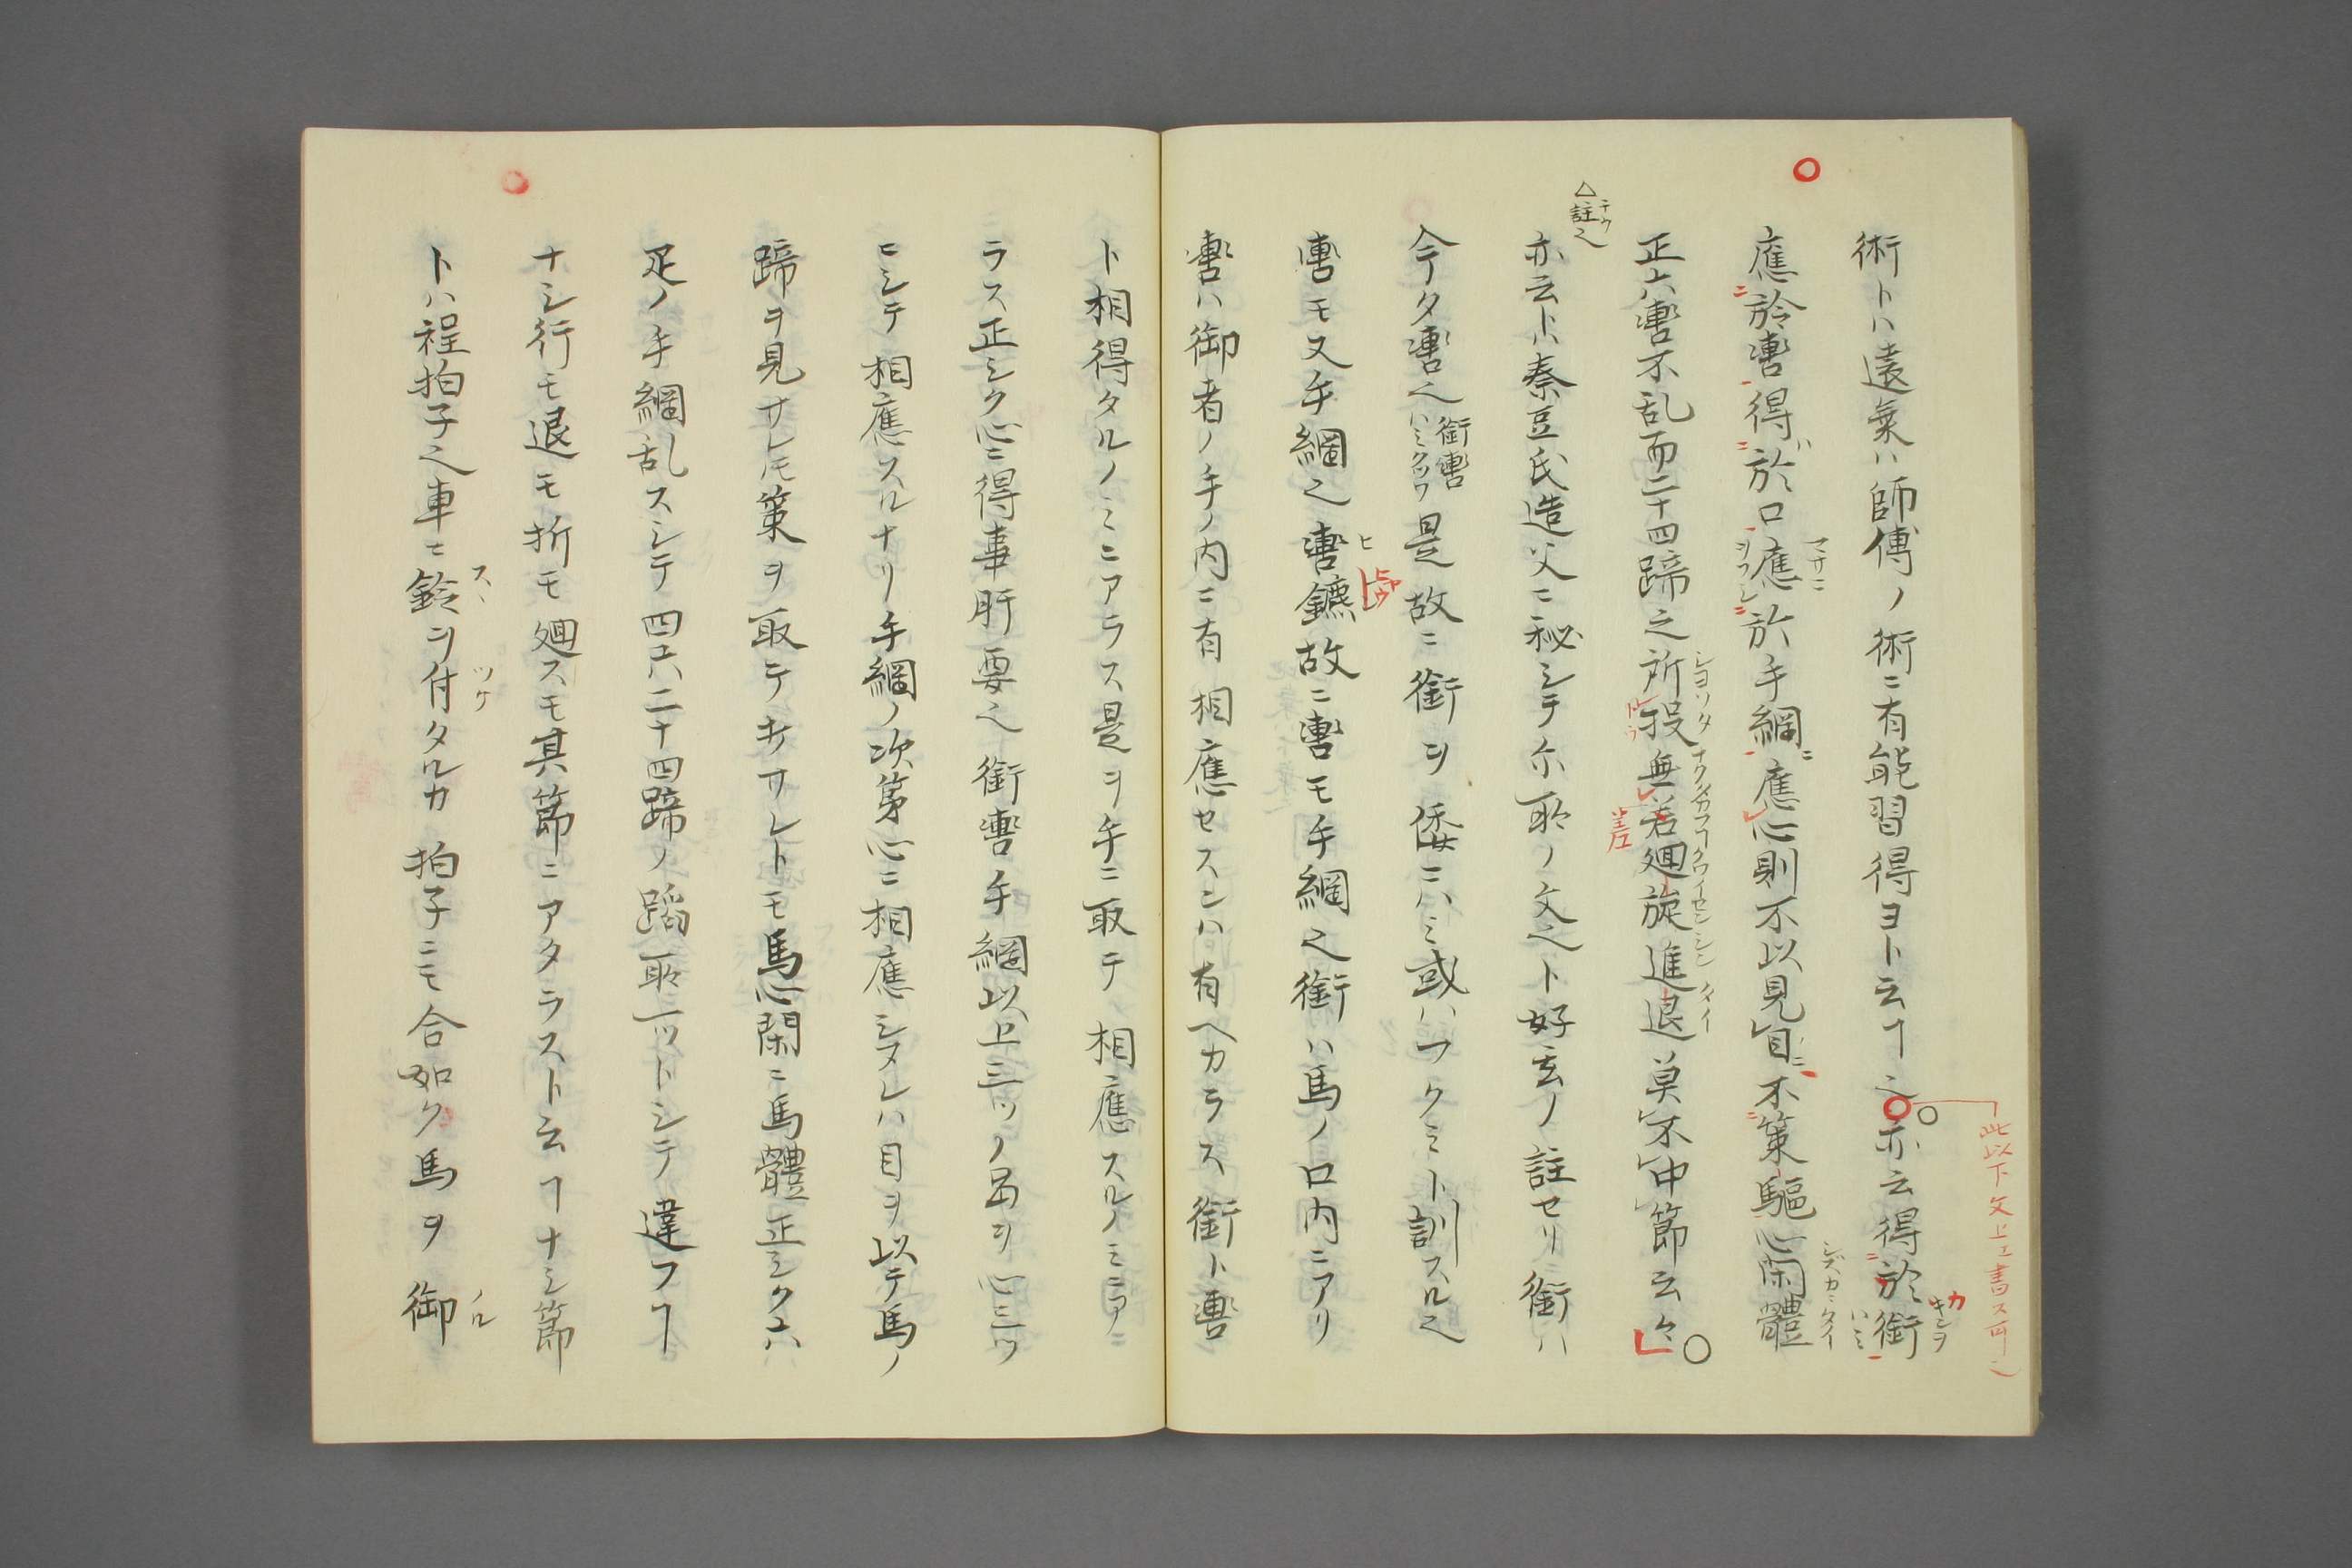 術トハ遠乗ハ師傅ノ術ニ有能習得ヨト云ヿ之亦云得於銜
此以下文上ェ書ス可之
應於轡得於口應於手綱應心則不以見目不策驅心閑體
正六轡不乱而二十四蹄之所投無若廻旋進退莫不中節云々
△註之
亦云トハ泰豆氏造父ニ秘シテ尓取ノ文之ト好玄ノ註セリ銜ハ
今タ轡之銜轡ハミクツワ是故ニ銜ヲ倭ニハミ或ハフクミト訓スル之
轡モ又手綱之轡鑣故ニ轡モ手綱之銜ハ馬ノ口内ニアリ
轡ハ御者ノ手ノ内ニ有相應セスンハ有ヘカラス銜ト轡
ト相得タルノミニアラス是ヲ手ニ取テ相應スルノミニアニ
ラス正シク心ニ得事肝要之銜轡手綱以上三ツノ品ヲ心三ツ
ニシテ相應スルナリ手綱ノ次第心ニ相應シヌレハ目ヲ以テ馬ノ
蹄ヲ見サレ𪜈策ヲ取テキサレトモ馬心閑ニ馬體正シク六
疋ノ手綱乱スシテ四六二十四蹄ノ蹈取一ツトシテ違フヿ
ナシ行モ退モ折モ廻スモ其節ニアタラスト云ヿナシ節
トハ程拍子之車ニ鈴ヲ付タルカ拍子ニモ合如ク馬ヲ御